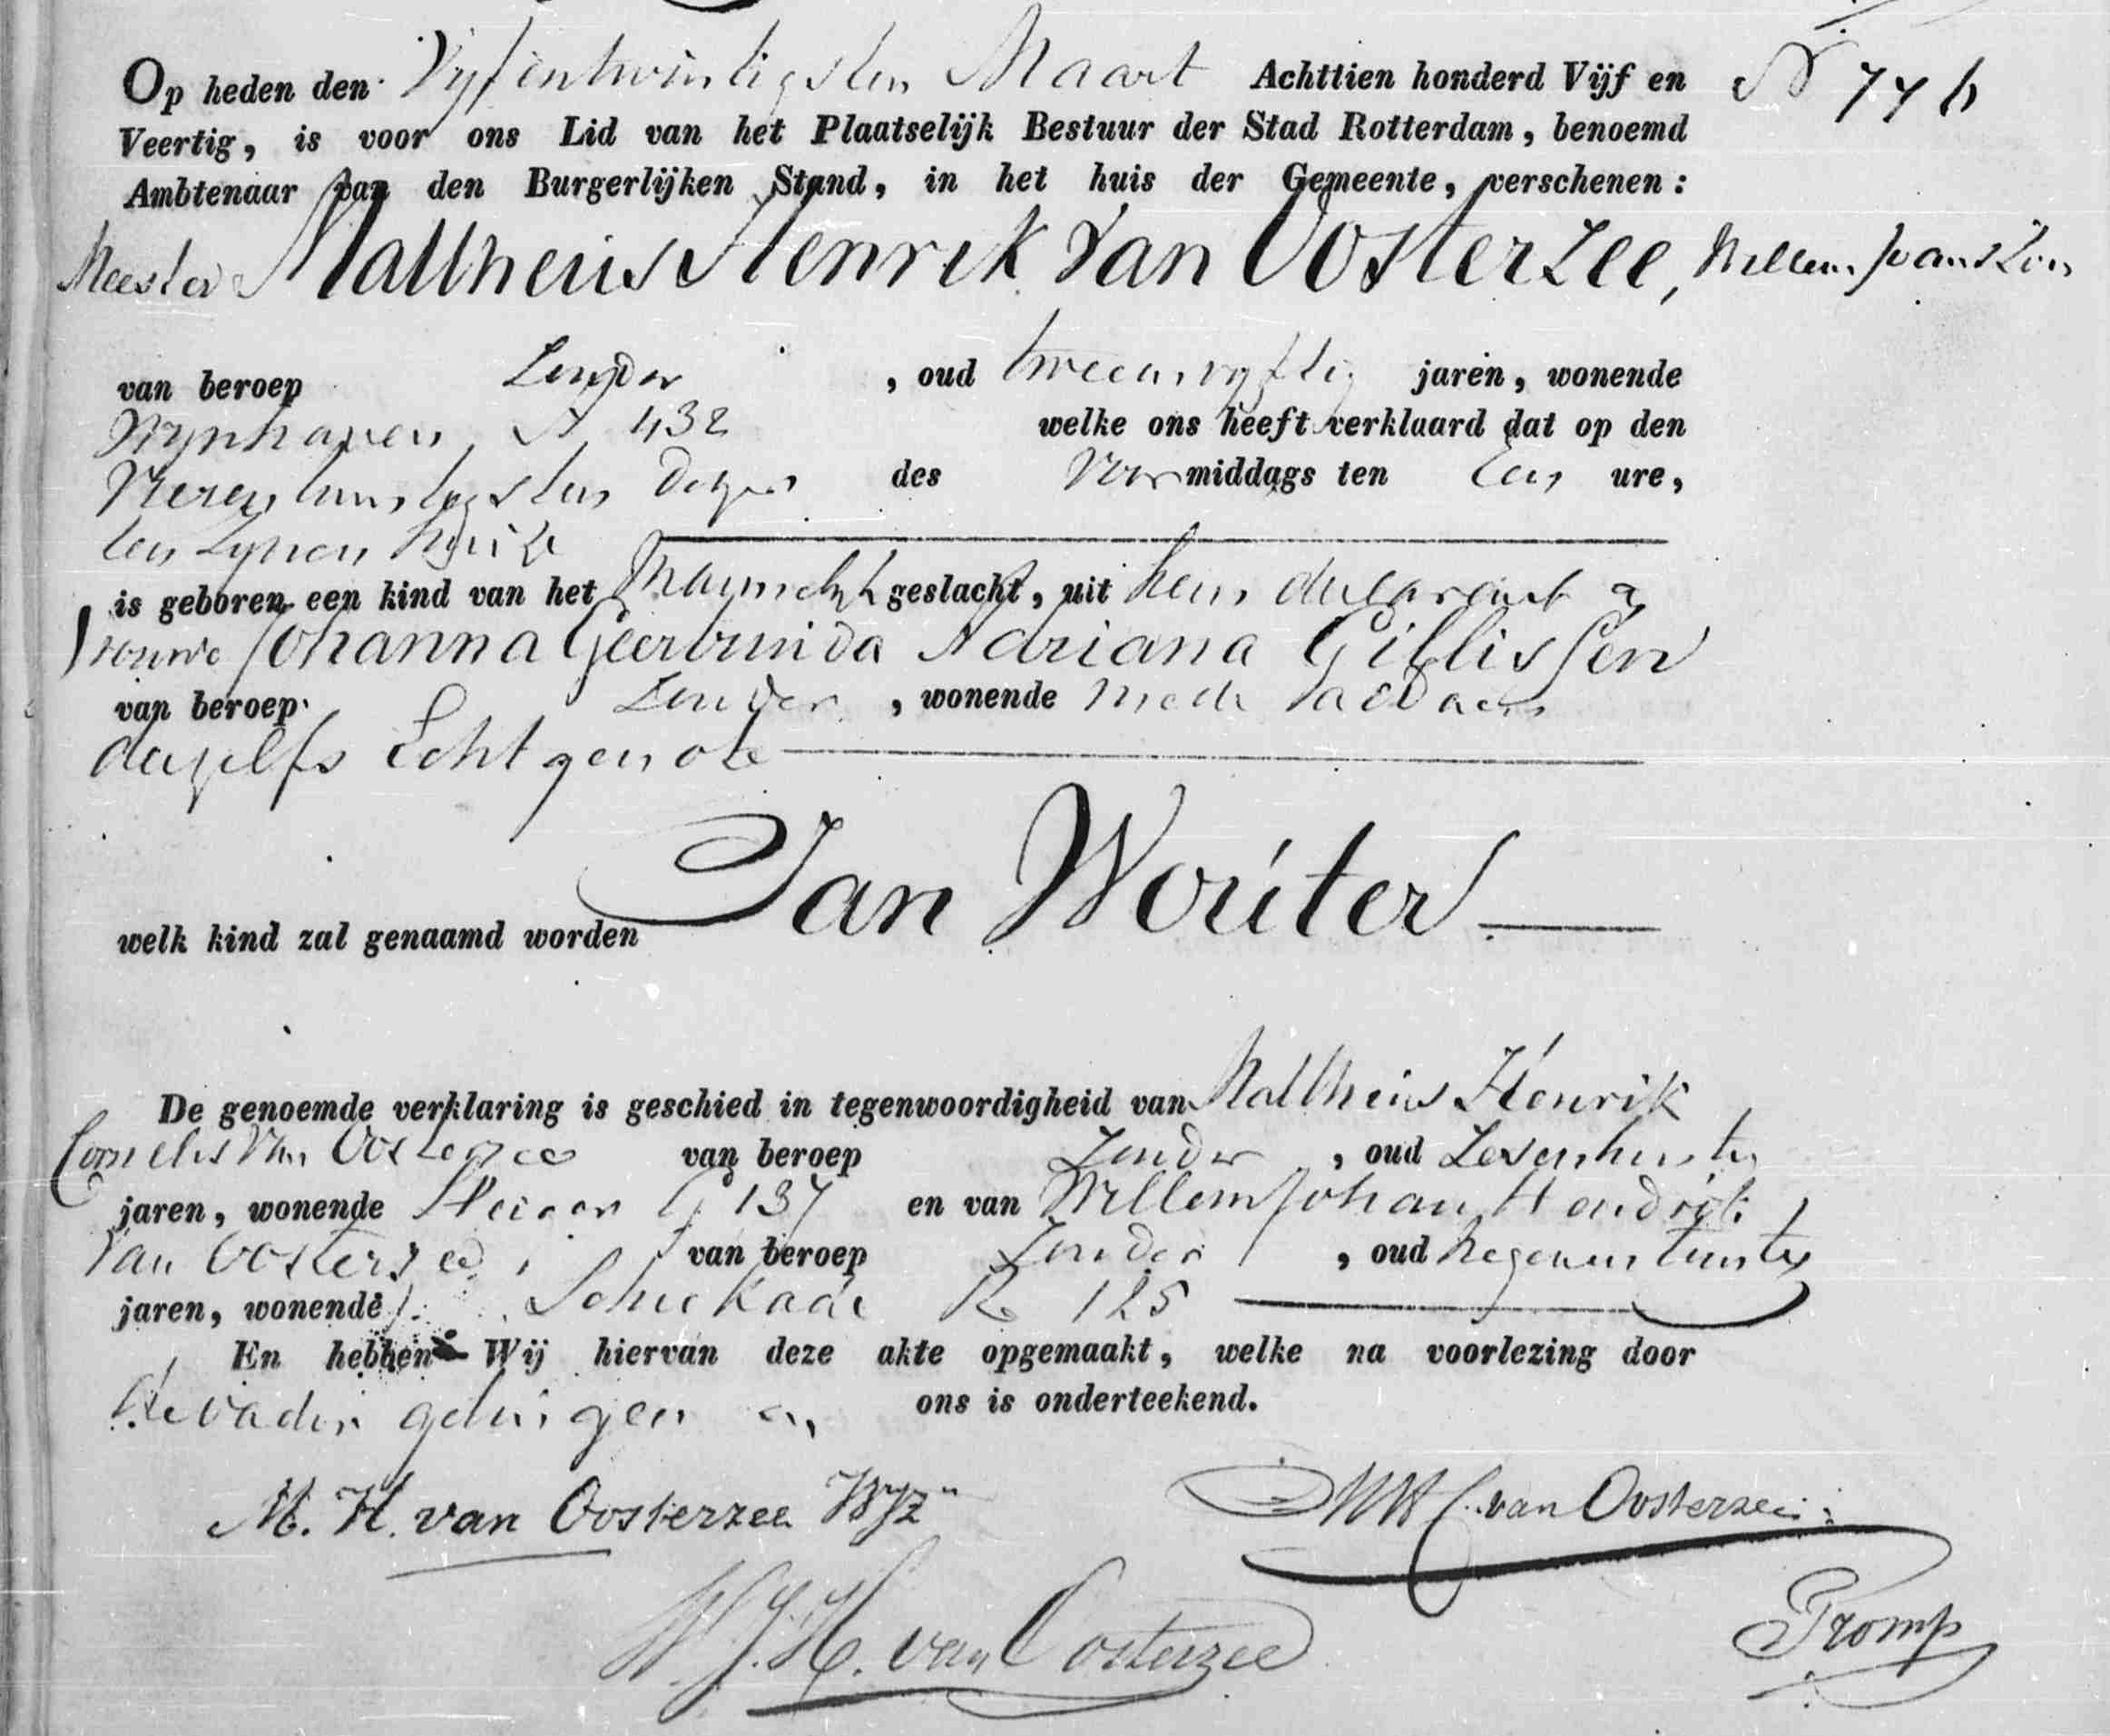 Op heden den Vyfentwintigsten Maart Achttien honderd Vijf en
Veertig, is voor ons Lid van het Plaatselijk Bestuur der Stad Rotterdam, benoemd
Ambtenaar van den Burgerlijken Stand, in het huis der Gemeente, verschenen:
Meester Mattheus Henrik Van Oosterzee, Willem Janszoon
van beroep Zonder, oud tweeenvyftig jaren, wonende
Wynhaven, A 432 welke ons heeft verklaard dat op den
Vierentwintigsten dezer des Voormiddags ten Een ure,
ten zynen huize
is geboren een kind van het Mannelyk geslacht, uit hem declarant en
Vrouwe Johanna Geertruida Adriana Gillissen
van beroep Zonder, wonende mede aldaar
deszelfs Echtgenote
welk kind zal genaamd worden Jan Wouter
De genoemde verklaring is geschied in tegenwoordigheid van Mattheus Henrik
Cornelis Van Oosterzee van beroep Zonder, oud Zevenentwintig
jaren, wonende Steiger G 137 en van Willem Johan Hendrik
Van Oosterzee van beroep Zonder, oud Negenentwintig
jaren, wonende Schiekade R 125
En hebben Wij hiervan deze akte opgemaakt, welke na voorlezing door
de vader getuigen en ons is onderteekend.
M. H. van Oosterzee WJzn
MHC. van Oosterzee
W. J. H. van Oosterzee
Promp